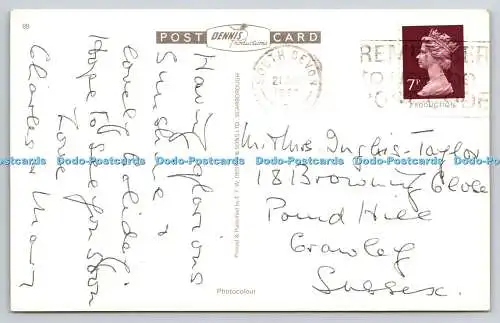 POST CARD
DENNIS
Productions
SOUTH DEVON
REMEMBER
7P
Having glorious
Sunshine &
lovely holiday
Hope to see you soon
Love
Charles &
Mr & Mrs Inglis-Taylor
18 Browning Close
Pound Hill
Crawley
Sussex.
Photocolour
Printed & Published by E. T. W. DENNIS & SONS LTD., SCARBOROUGH
Dodo-Postcards Dodo-Postcards Dodo-Postcards Dodo-Postcards Dodo-Postcards Dodo-Postcards